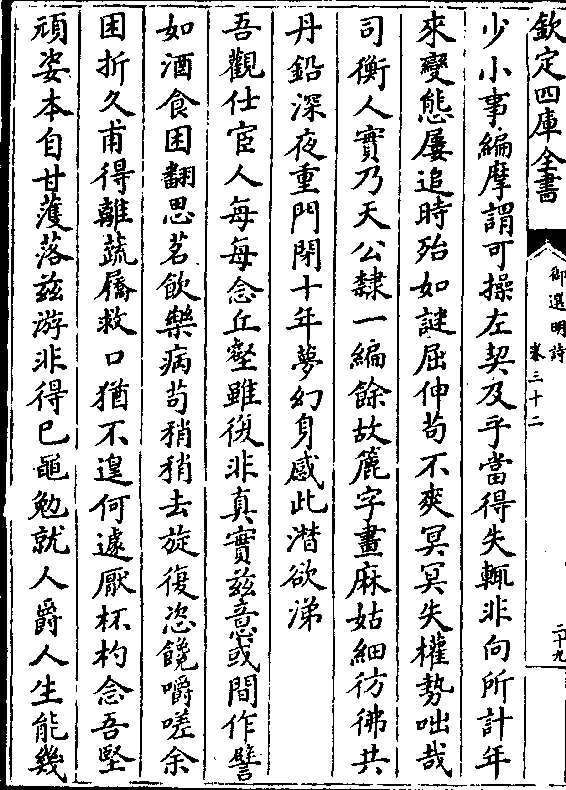 欽定四庫全書
御選明詩
卷三十二
二十九
少小事編摩謂可操左契及乎當得失輒非向所計年
來變態屢追時殆如謎屈伸苟不爽冥冥失權勢咄哉
司衡人實乃天公隸一編餘故簏字畫麻姑細彷彿共
丹鉛深夜重門閉十年夢幻身感此潛欲涕
吾觀仕宦人每每念丘壑雖復非真實茲意或間作譬
如酒食困翻思茗飲樂病苟稍稍去旋復恣饞嚼嗟余
困折久甫得離蔬屩救口猶不遑何遽厭杯杓念吾堅
頑姿本自甘濩落茲游非得已黽勉就人爵人生能幾